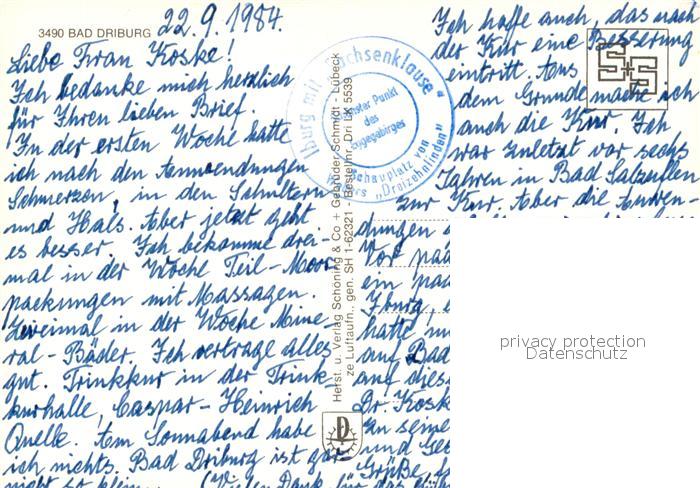 3490 BAD DRIBURG 22.9.1984.
Liebe Frau Koske!
Ich bedanke mich herzlich
für Ihren lieben Brief.
In der ersten Woche hatte
ich nach den Anwendungen
Schmerzen, in den Schultern
und Hals. Aber jetzt geht
es besser. Ich bekomme drei-
mal in der Woche Teil-Moor
packungen mit Massagen.
Zweimal in der Woche Mine
ral-Bäder. Ich vertrage alles
gut. Trinkkur in der Trink
kurhalle, Caspar-Heinrich
Quelle. Am Sonnabend habe
ich nichts. Bad Driburg ist gar
nicht so klein. (Vielen Dank für das
Iburg mit "Sachsenklause"
Punkt
des
Eggegebirges
Schauplatz von
"Dreizehnlinden"
Herst. u. Verlag Schöning & Co + Gebrüder Schmidt - Lübeck
ze Luftaufn., gen. SH 1-62321 Bestellnr. Dri LK 5539
Ich hoffe auch, das nach
der Kur eine Besserung
eintritt. Aus
dem Grunde mache ich
auch die Kur. Ich
war zuletzt vor sechs
Jahren in Bad Salzuflen
zur Kur. Aber die Anwen-
dungen
Vor
ein
Iburg
hatte
auf Bad
auf dies
Dr. Koske
zu seine
und Ge
Grüße,
privacy protection
Datenschutz